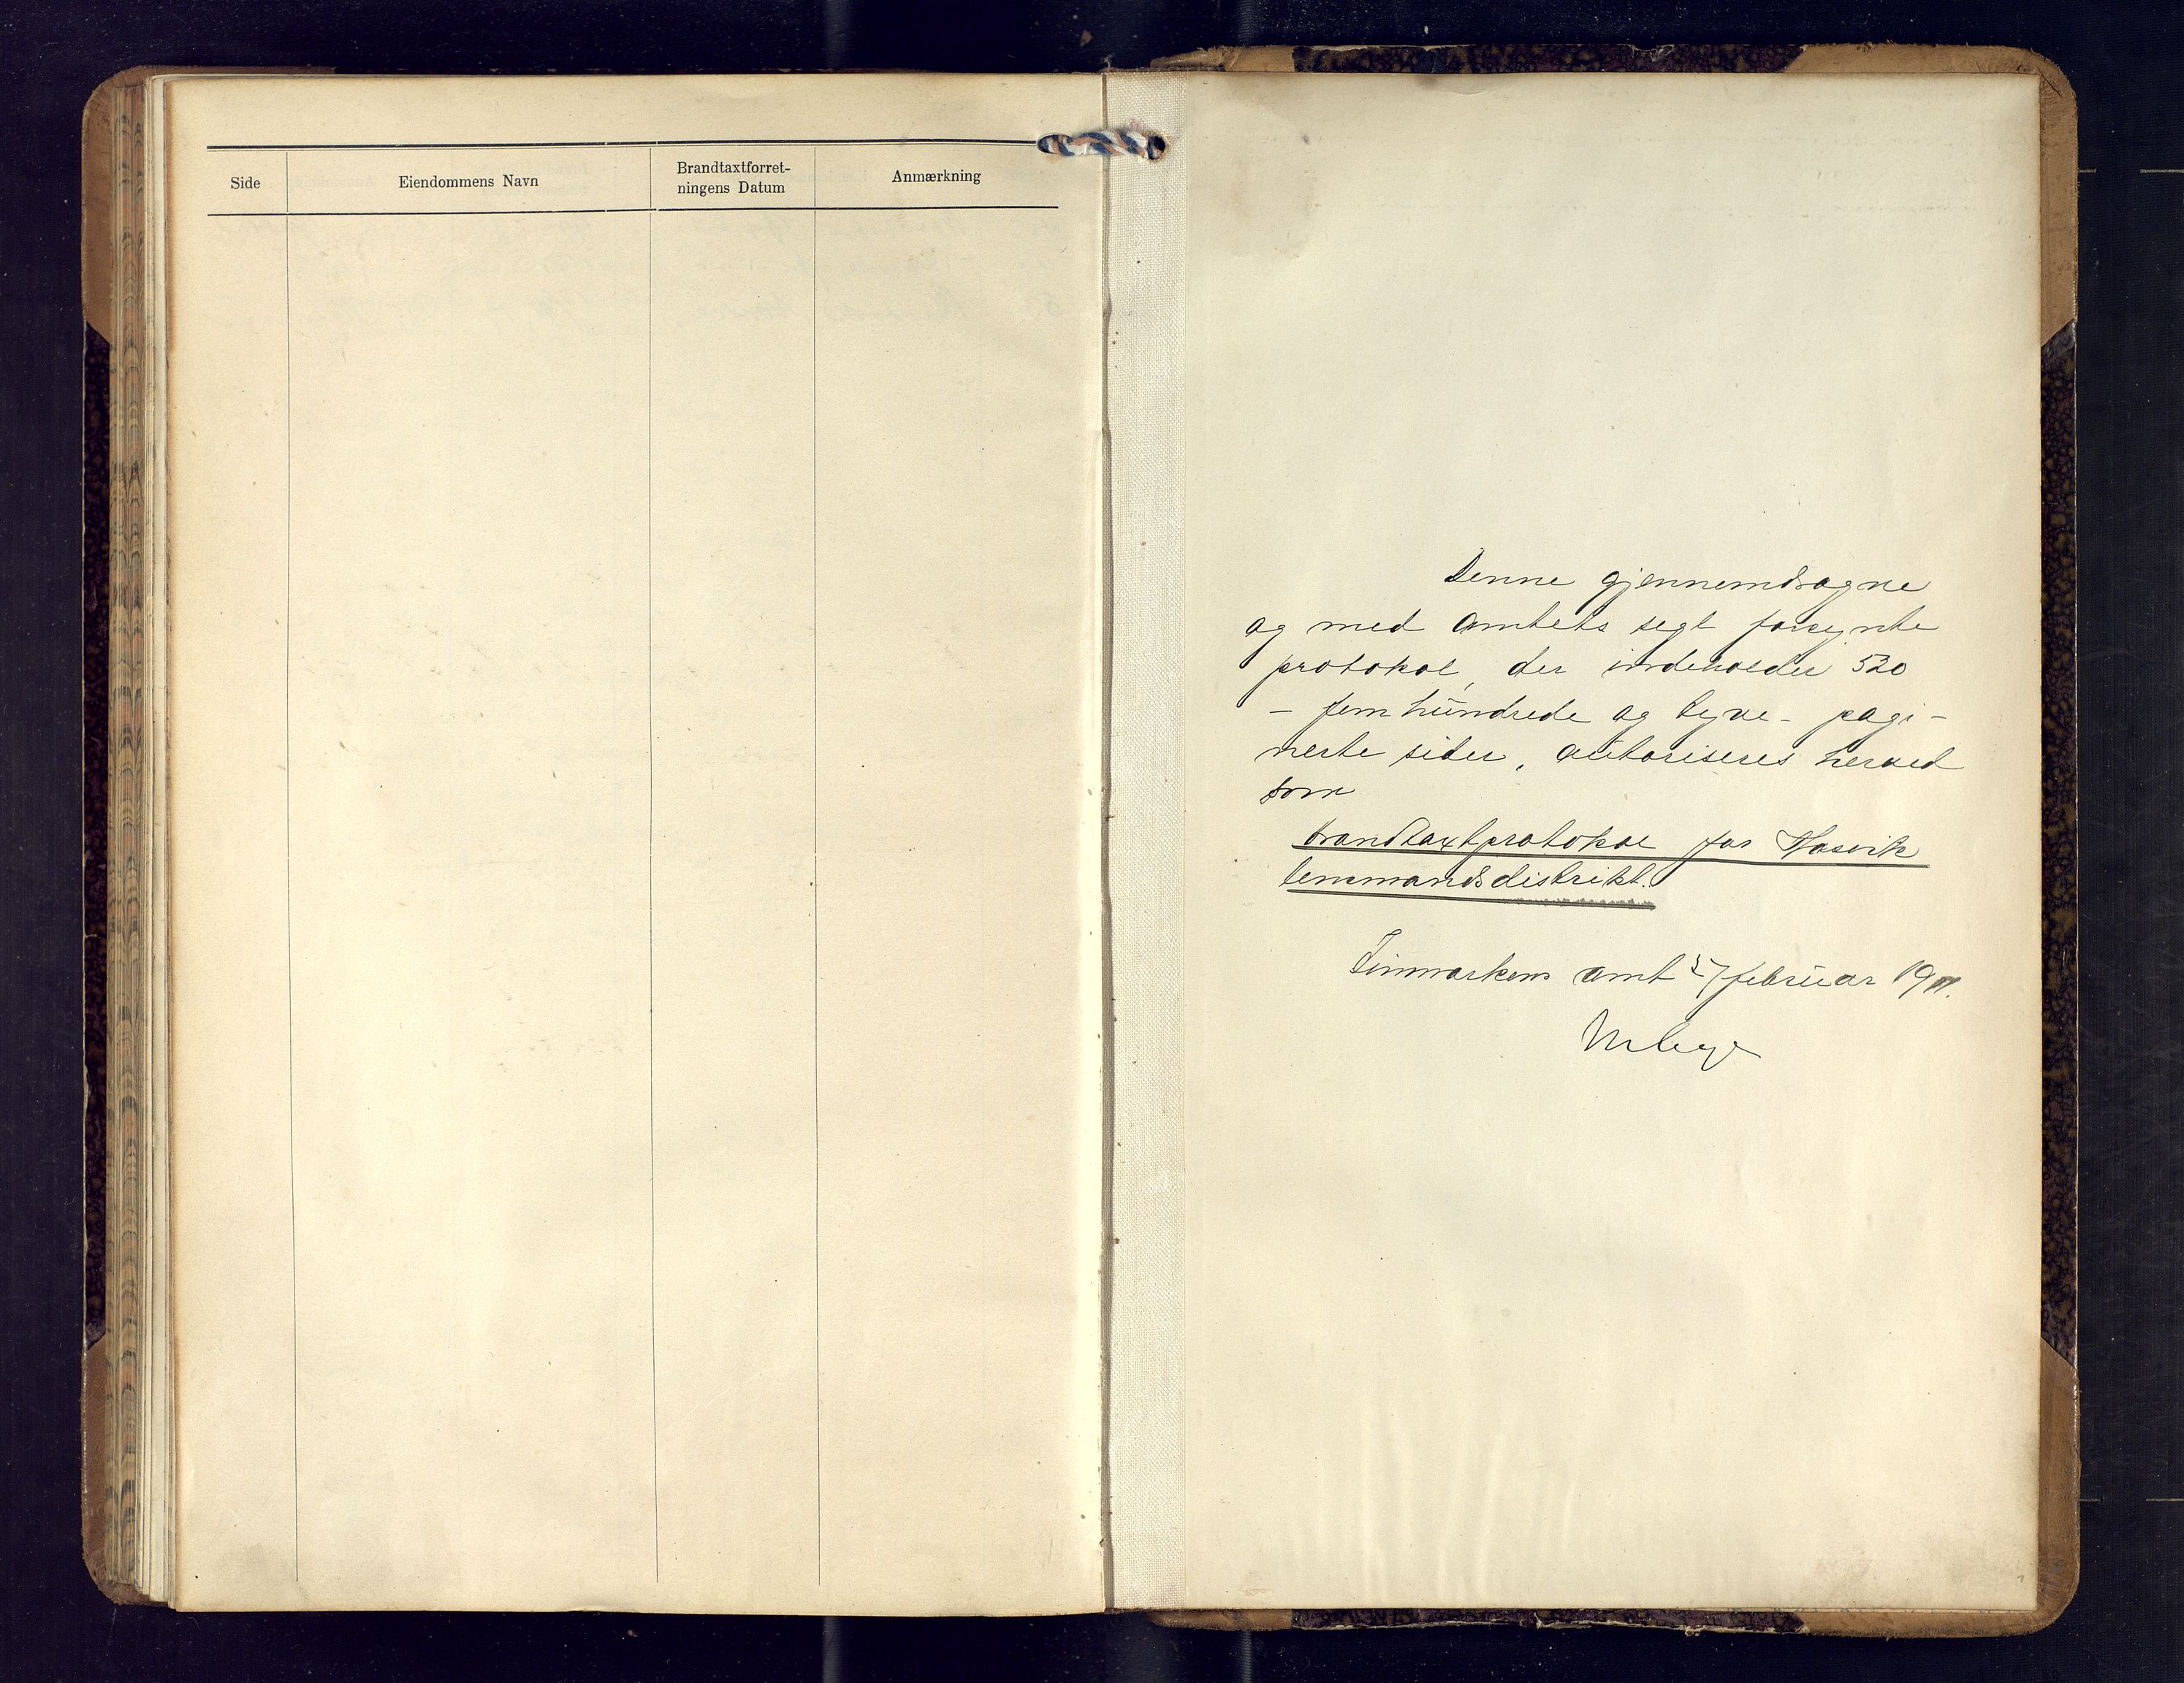 Side
Eiendommens Navn
Brandtaxtforret-
ningens Datum
Anmærkning
Denne gjennemdragne
og med amtets segl forsynte
protokol, der indeholder 520
- fem hundrede og tyve - pagi-
nerte sider, autoriseres herved
som
brandtaxtprotokol for Hasvik
lensmandsdistrikt.
Finmarkens amt 27 februar 1911.